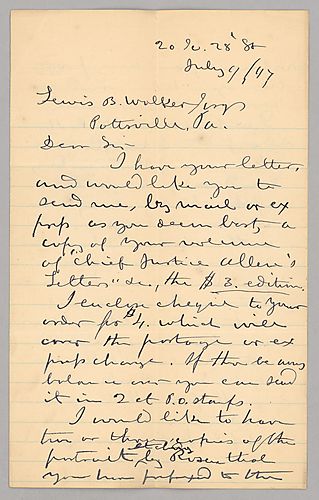 20 W. 28" St
July 9/97
Lewis B. Walker Esqr
Pottsville, Pa.
Dear Sir
I have your letter,
and would like you to
send me, by mail or ex
press as you deem best, a
copy of your volume
of "Chief Justice Allen's
Letters" &c., the $3. edition.
I enclose cheque to your
order for $4. which will
cover the postage or ex
press charge. If there be any
balance over you can send
it in 2 ct P.O. stamps.
I would like to have
two or three copies of the
etchings
portrait by Rosenthal
you have prefixed to the